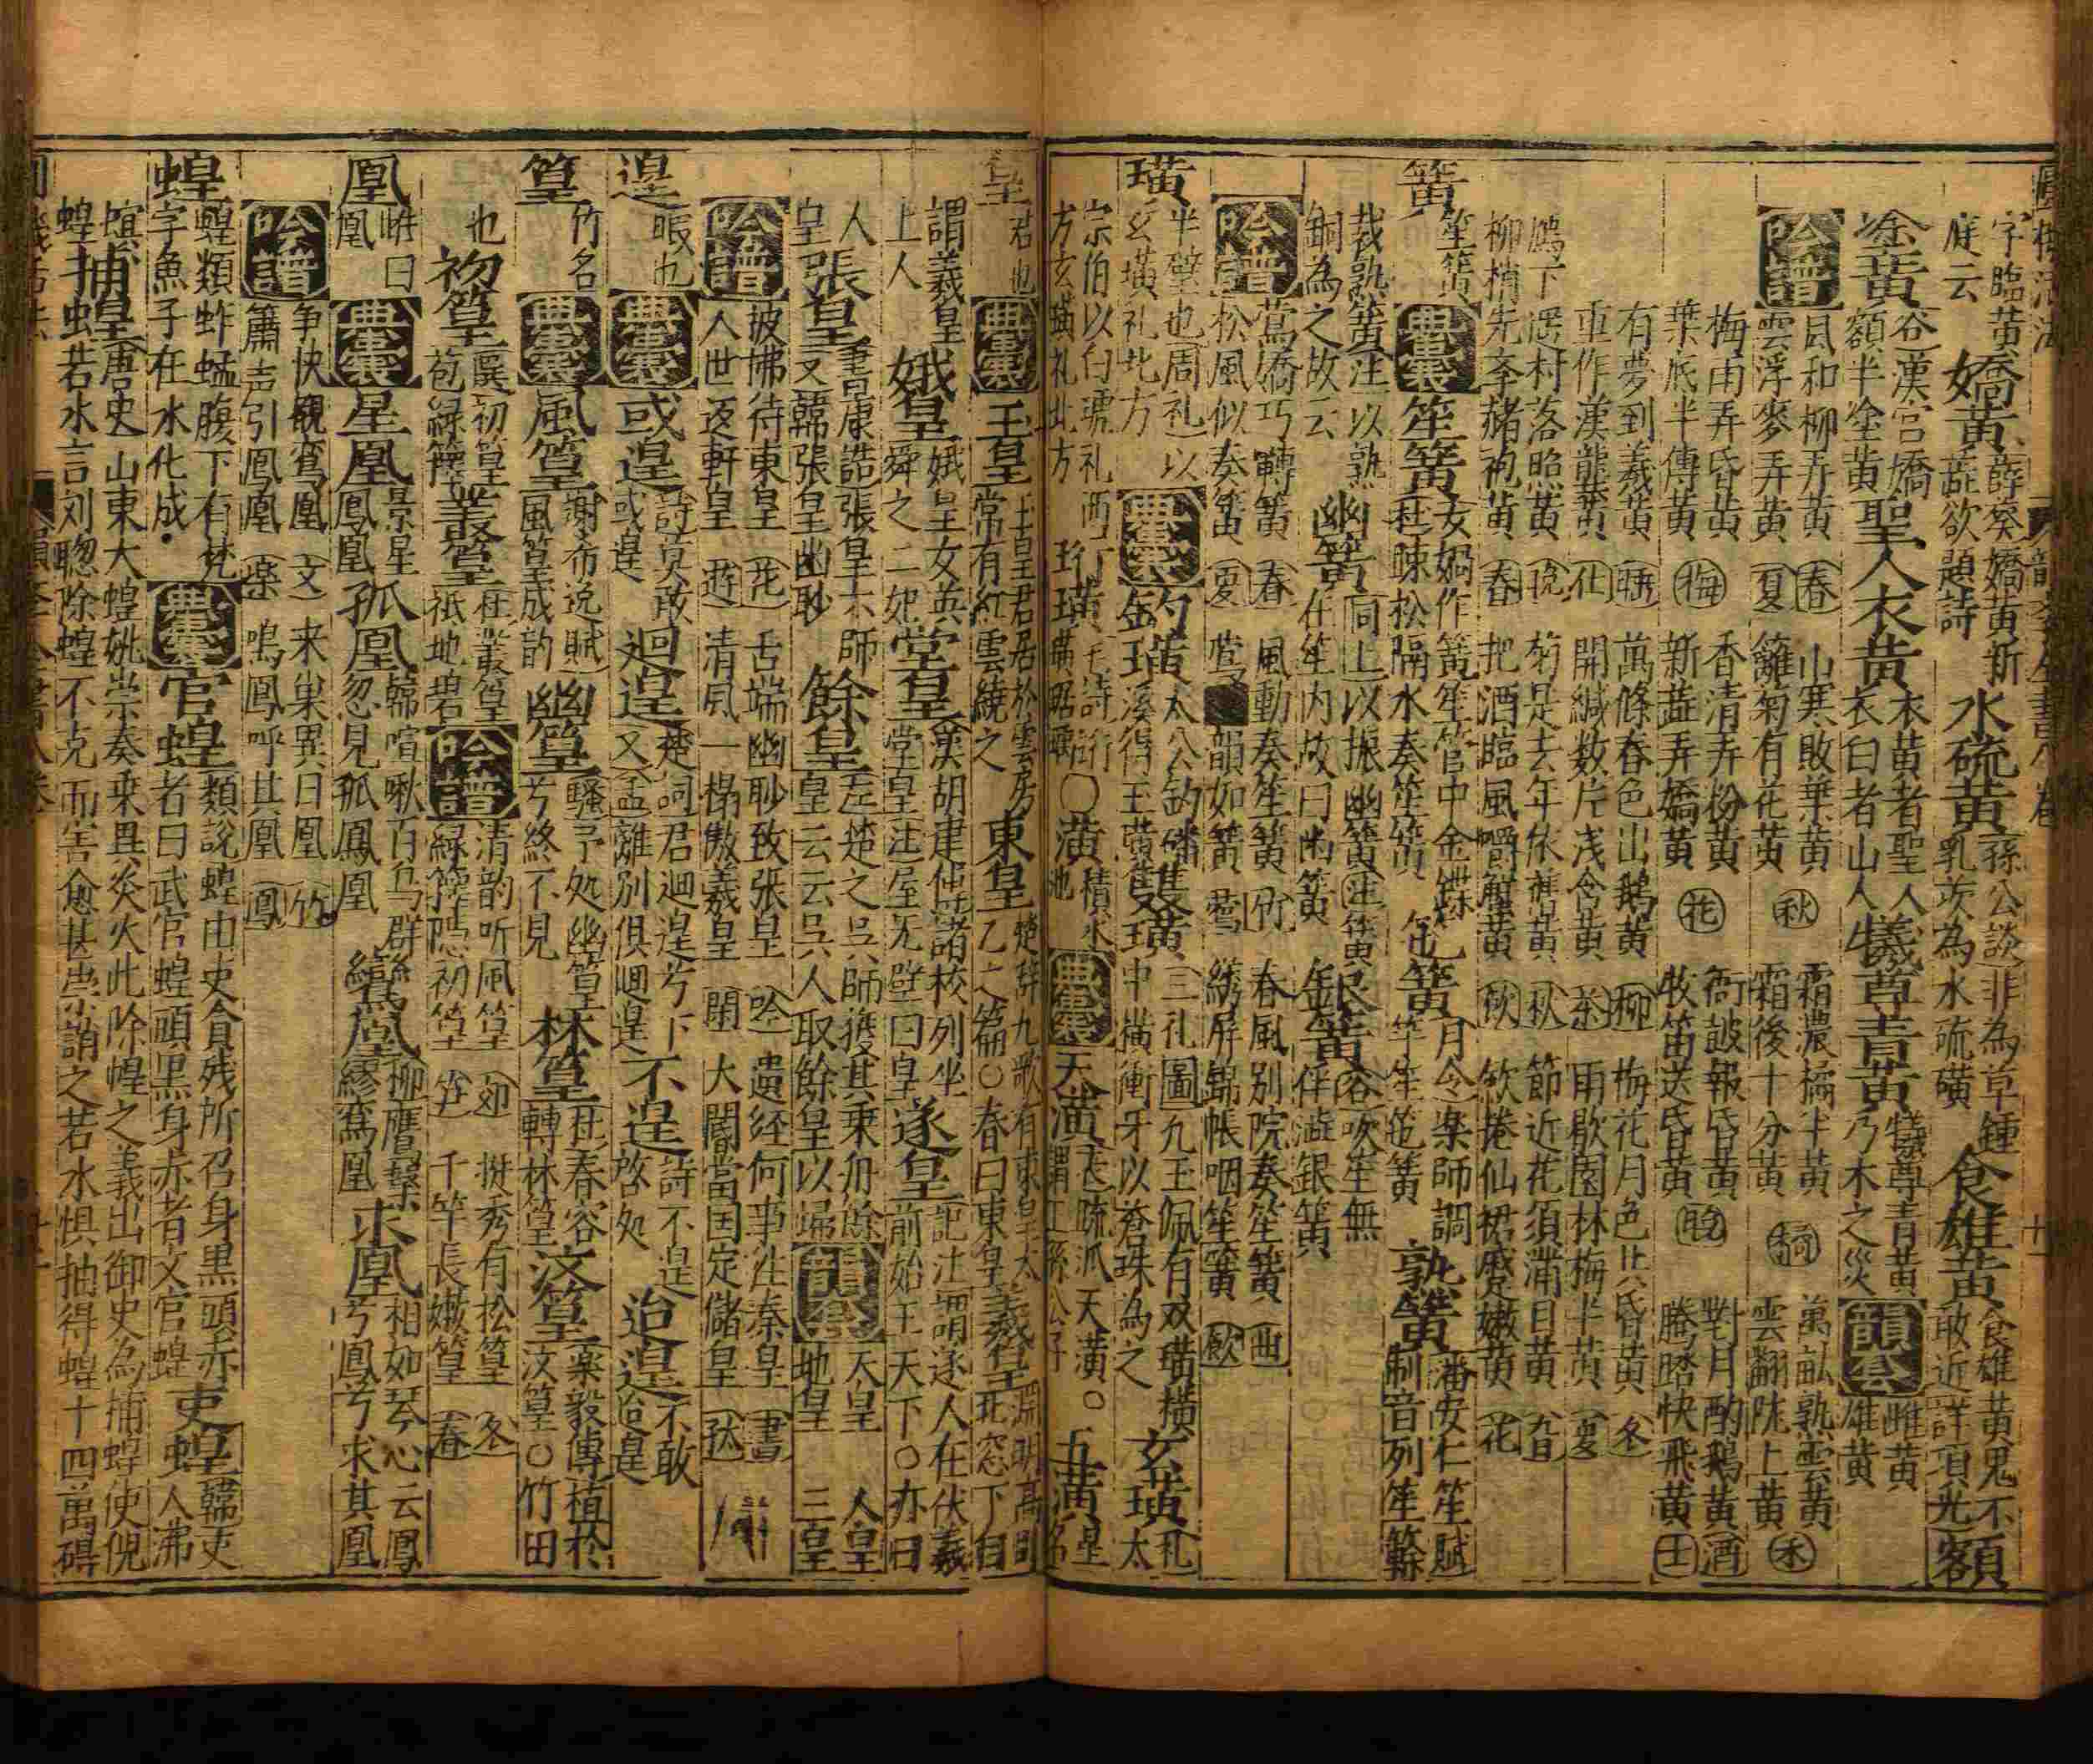 字臨黃庭云 嬌黃 薛葵嬌黃新蔬欲題詩 水硫黃 孫公談非為草鍾乳茨為水硫磺 食雄黃 食雄黃鬼不敢近 詳項光 額
塗黃 谷漢宮嬌額半塗黃 聖人衣黃 衣黃者聖人衣白者山人 犧尊青黃 犧尊青黃乃木之災 韻 雌黃 雄黃
吟譜 風和柳弄黃 春 山寒敗葉黃 秋 霜濃橘半黃 橘 萬畝熟雲黃 禾
雲浮麥弄黃 夏 籬菊有花黃 霜後十分黃 雲翻陇上黃
梅雨弄昏黃 梅 香清弄粉黃 花 衙皷報昏黃 晚 對月酌鵝黃 酒
葉底半傳黃 新蔬弄嬌黃 牧笛送昏黃 騰踏快飛黃 士
有夢到羲黃 萬條春色出鵝黃 柳 梅花月色共昏黃 冬
重作漢龍黃 仕 開緘数片浅含黃 茶 雨歇園林梅半黃 夏
鴈下深村落照黃 晚 菊是去年依舊黃 秋 節近花須滿目黃
柳梢先李赭袍黃 春 把酒臨風嚼蟹黃 飲 欲捲仙裙蹙嫩黃 花
簧 笙簧 典囊 笙簧 女媧作簧笙管中金鍱 杜陳松隔水奏笙簧 笆簧 月令樂師調竽笙笆簧 熟簧 潘安仁笙賦制音列笙簳
裁熟簧注以熟銅為之故云 幽簧 同上以振幽簧注簧在笙内故曰幽簧 銀簧 谷吹笙無伴澁銀簧
吟譜 鶯嬌巧轉簧 春 風動奏笙簧 竹 春風別院奏笙簧 曲
松風似奏簧 夏 鶯 韻如簧 鶯 綉屏錦帳咽笙簧 飲
璜 半璧也周礼以玄璜礼北方 典囊 釣璜 太公釣磻溪得玉璜 雙璜 三礼圖九玉佩有双璜橫中橫衝牙以蒼珠為之 玄璜 礼太
宗伯以白琥礼西方玄璜礼北方 珩璜 〇潢 積水池 典囊 天潢 〇五潢 星名
皇 君也 典囊 玉皇 玉皇君居於雲房常有紅雲繞之 東皇 楚辞九歌有東皇太乙之篇〇春曰東皇 羲皇 淵明高臥北窓下自
謂羲皇上人 娥皇 娥皇女英舜之二妃 堂皇 漢胡建使諸校列坐堂皇注屋无壁曰皇 遂皇 記注謂遂人在伏羲前始王天下〇亦曰
人皇 張皇 書康誥張皇六師又韓張皇幽眇 餘皇 左楚之吳師獲其乗舟餘皇云云吳人取餘皇以歸 韻 天皇 人皇 地皇 三皇
吟譜 披拂待東皇 花 舌端幽眇致張皇 吟 遺経何事泩秦皇 書
人世返軒皇 遊 清風一榻傲羲皇 閑 大閽當国定儲皇
遑 暇也 典囊 或遑 詩莫敢或遑 廻遑 楚詞君迴遑兮下又孟離別俱迴遑 不遑 詩不遑啓処 迨遑 不敢迨遑
篁 竹名 典囊 風篁 謝希逸賦風篁成韵 幽篁 騷予処幽篁兮終不見 林篁 杜春容轉林篁 汶篁 楽毅傳植於汶篁〇竹田
也 初篁 謝初篁苞緑籜 叢篁 杜叢篁祗地碧 吟譜 清韵听風篁 挺秀有松篁 冬
緑籜隠初篁 笋 千竿長嫩篁 春
凰 雌曰凰 典囊 星凰 景星鳳凰 孤凰 韓喧啾百鳥群忽見孤鳳凰 鸞凰 柳鷹鸇繆鸞凰 求凰 相如琴心云鳳兮鳳兮求其凰
吟譜 争快覩鸞凰 文 来巢異日凰 竹
簫声引鳳凰 楽 鳴鳳呼其凰 鳳
蝗 蝗類蚱蜢腹下有梵字魚子在水化成 典囊 官蝗 類說蝗由吏貪残所召身黒頭赤者曰武官蝗頭黒身赤者文官蝗 吏蝗 韓吏人沸
蝗 捕蝗 唐史山東大蝗姚崇奏乗畀炎火此除蝗之義出御史為捕蝗使倪若水言刘聰除蝗不克而害愈甚崇誚之若水惧抽得蝗十四萬碍